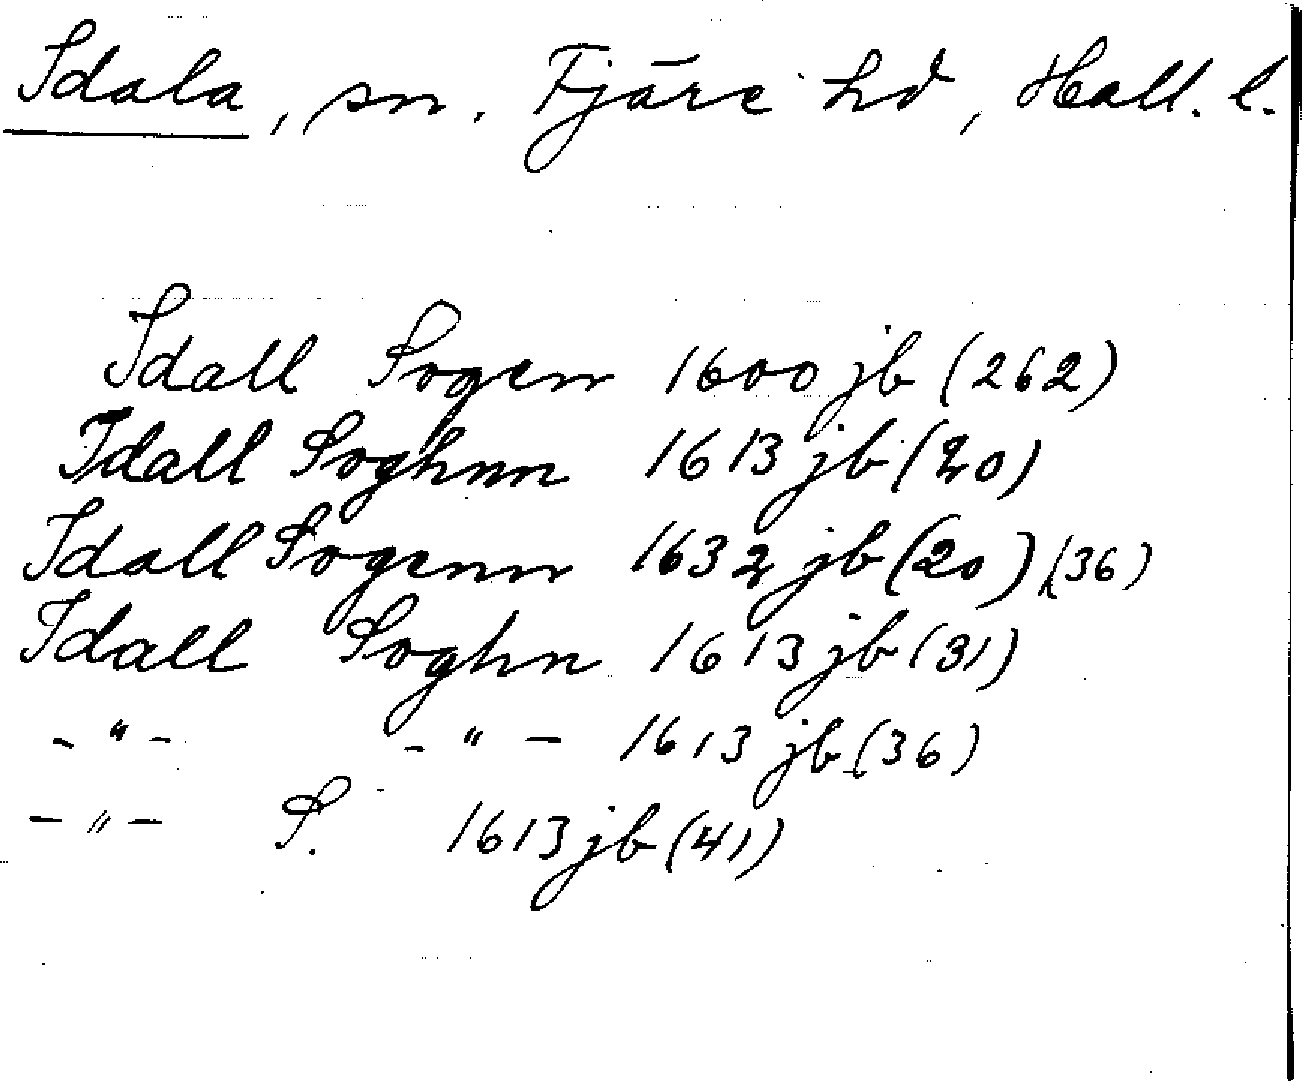 Idala, sn. Fjäre hd, Hall. l.
Idall Sogen 1600 jb (262)
Idall Soghnn 1613 jb (20)
Idall Sogenn 1632 jb (20), (36)
Idall Soghn 1613 jb (31)
- " - - " - 1613 jb (36)
- " - S. 1613 jb (41)